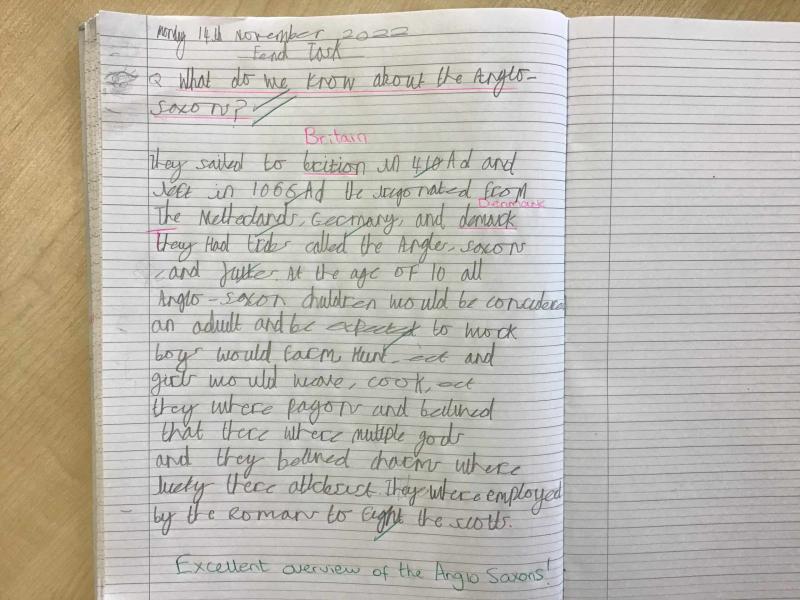 Monday 14th November 2022
Fend Task
Q What do we know about the Anglo-
Saxons?
Britain
they sailed to brition in 410 Ad and
left in 1066 Ad the from
Denmark
The Netherlands, Germany, and demark
they Had tribes called the Angles, saxons
, and Jutes. At the age of 10 all
Anglo-saxon children would be considered
an adult and be expected to work
boys would farm, Hunt, ect and
girls would weave, cook, ect
they where pagons and belived
that there where multiple gods
and they belived charms where
lucky there They where employed
by the Romans to fight the scotts.
Excellent overview of the Anglo Saxons!